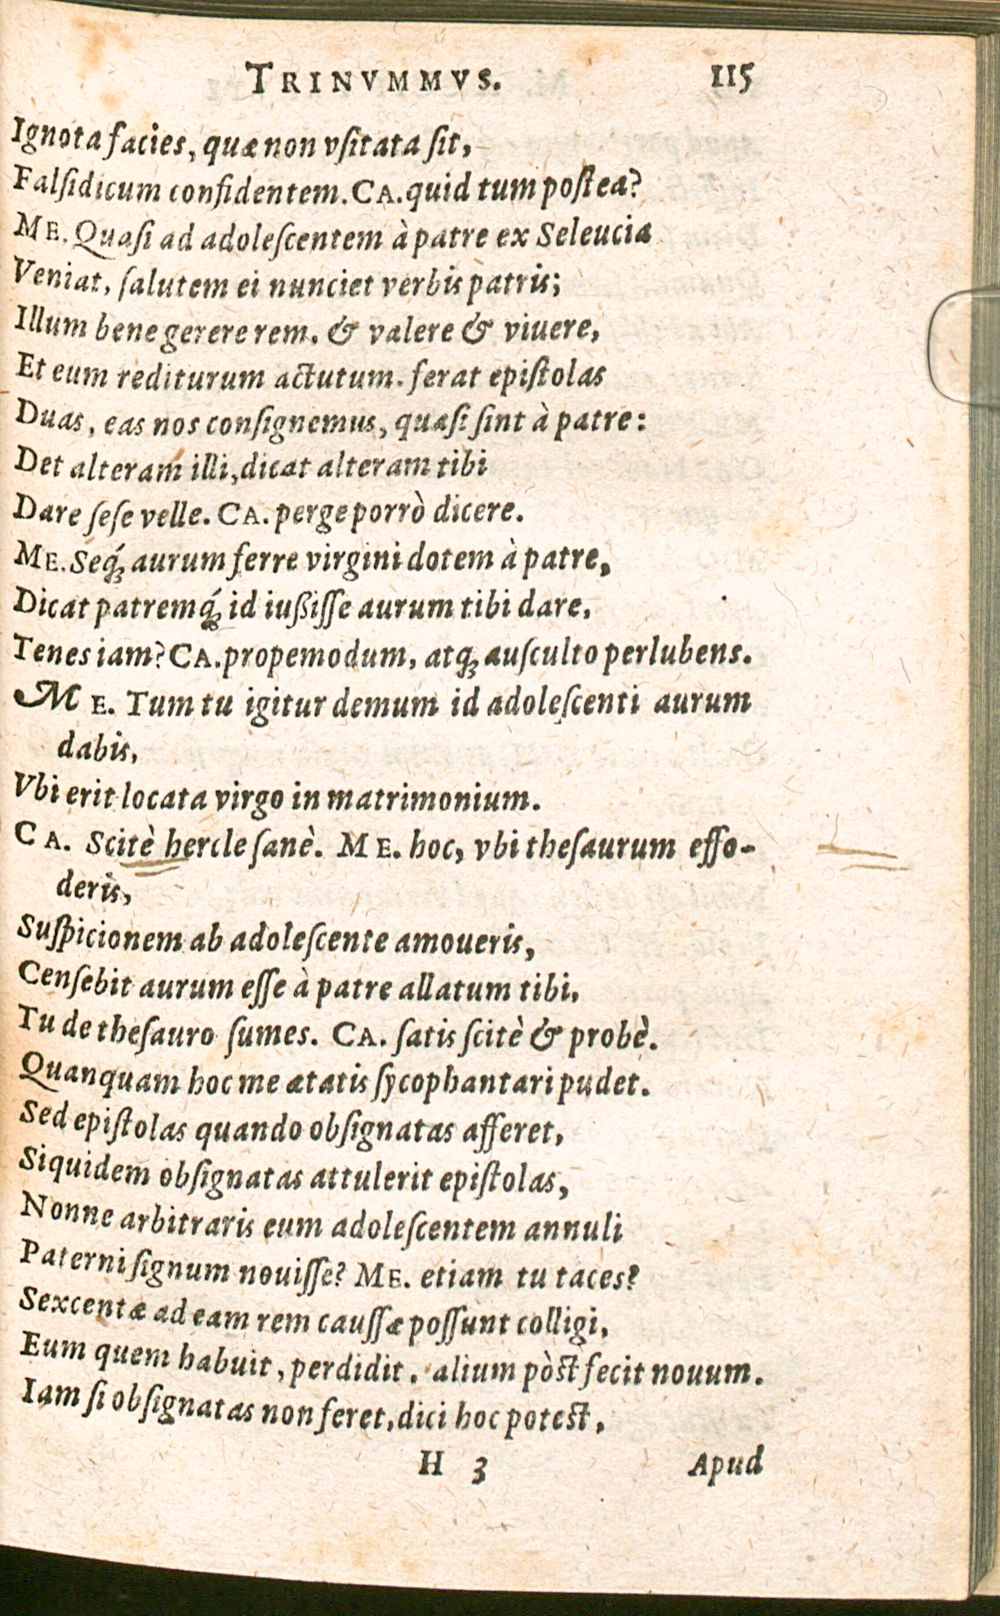 TRINVMMVS. 115
Ignota facies, quæ non vſitata ſit,
Falſidicum confidentem. CA. quid tum poſtea?
ME. Quaſi ad adoleſcentem à patre ex Seleucia
Veniat, ſalutem ei nunciet verbis patris;
Illum bene gerere rem. & valere & viuere,
Et eum rediturum actutum. ferat epiſtolas
Duas, eas nos conſignemus, quæſi ſint à patre:
Det alteram illi, dicat alteram tibi
Dare ſeſe velle. CA. perge porrò dicere.
ME. Seq́; aurum ferre virgini dotem à patre,
Dicat patremq́; id iußiſſe aurum tibi dare,
Tenes iam? CA. propemodum, atq; auſculto perlubens.
ME. Tum tu igitur demum id adoleſcenti aurum
dabis,
Vbi erit locata virgo in matrimonium.
CA. Scitè hercle ſanè. ME. hoc, vbi theſaurum effo-
deris,
Suſpicionem ab adoleſcente amoueris,
Cenſebit aurum eſſe à patre allatum tibi,
Tu de theſauro ſumes. CA. ſatis ſcitè & probè.
Quanquam hoc me ætatis ſycophantari pudet.
Sed epiſtolas quando obſignatas afferet,
Siquidem obſignatas attulerit epiſtolas,
Nonne arbitraris eum adoleſcentem annuli
Paterni ſignum nouiſſe? ME. etiam tu taces?
Sexcentæ ad eam rem cauſſæ poſſunt colligi,
Eum quem habuit, perdidit. alium pòſt fecit nouum.
Iam ſi obſignatas non feret, dici hoc poteſt,
H 3 Apud